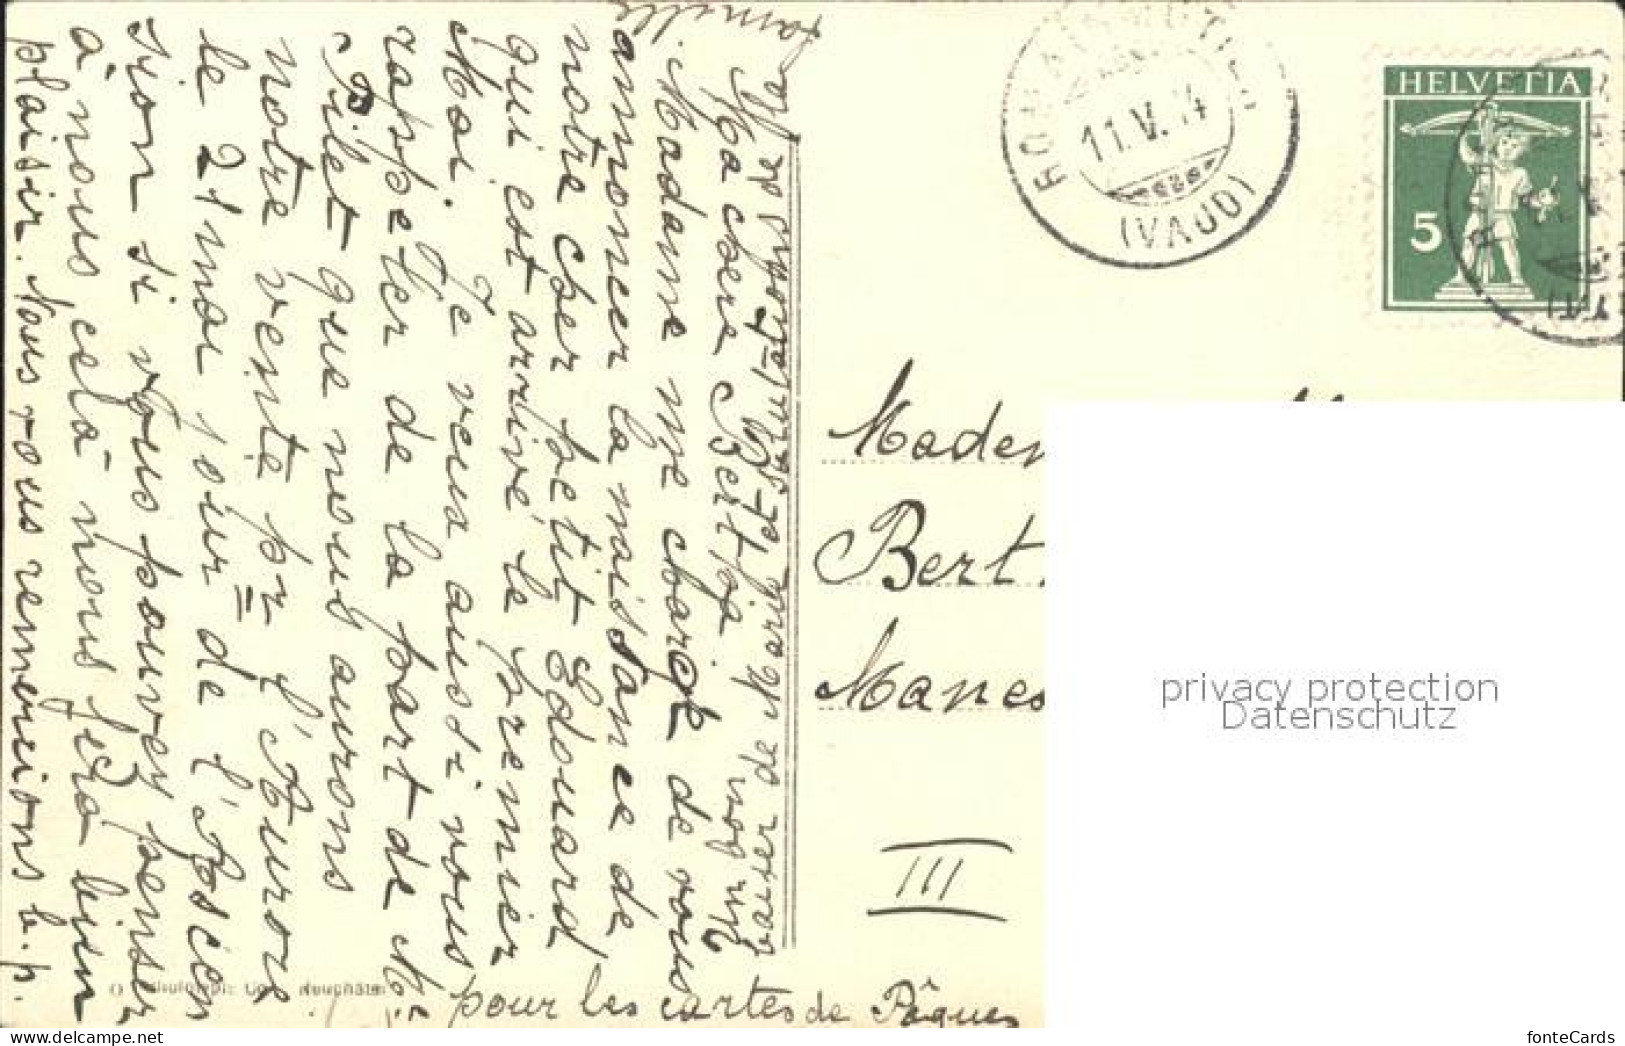 HELVETIA
5
11.V.14
(VAUD)
Ma chère Bertha
Madame me charge de vous
annoncer la naissance de
notre cher petit Edouard
qui est arrivé le premier
Mai. Je veux aussi vous
rappeler de la part de Mr.
Pilet que nous aurons
notre vente pr l'Aurore
le 21 mai jour de l'Ascen
sion si vous pouvez penser
à nous celà nous fera bien
plaisir. Nous vous remercions b. p.
pour les cartes de Pâques
Un bon
baiser de Marie et salutations de la
famille
Bert
Manes
III
privacy protection
Datenschutz
fonteCards